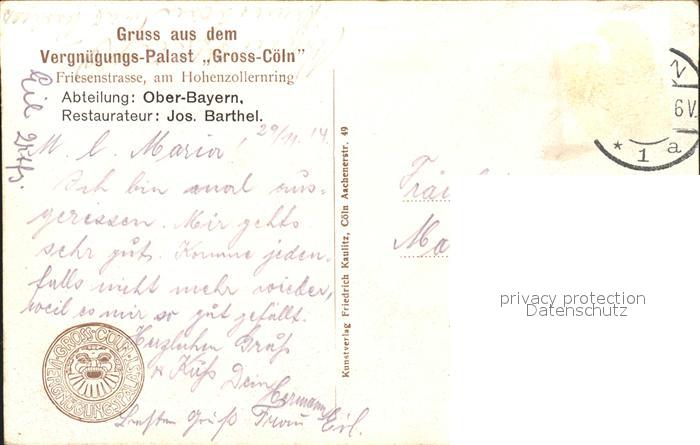 Gruss aus dem
Vergnügungs-Palast „Gross-Cöln”
Friesenstrasse, am Hohenzollernring
Abteilung: Ober-Bayern,
Restaurateur: Jos. Barthel.
29/11.14
M. l. Maria!
Ich bin mal aus-
gerissen. Mir gehts
sehr gut. Komme jeden-
falls nicht mehr wieder,
weil es mir so gut gefällt.
Herzlichen Gruß
u Kuß Dein
Hermann
Gruß
GROSS-CÖLN
VERGNÜGUNGSPALAST
Kunstverlag Friedrich Kaulitz, Cöln Aachenerstr. 49
6V.
* 1 a
Fräu
Ma
privacy protection
Datenschutz